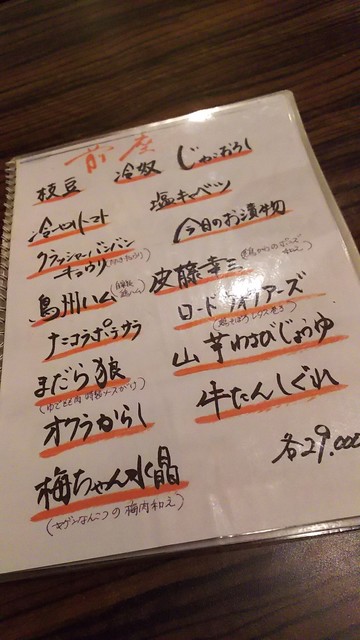 前座
枝豆
冷奴
じゃがおろし
冷やしトマト
塩キャベツ
クラッシャーバンバンキュウリ
(たたききゅうり)
今日のお漬物
鳥州ハム
皮藤幸三
ナニコラポテサラ
ロードウォリアーズ
まだら狼
山芋わさびじょうゆ
オクラがらし
牛たんしぐれ
梅ちゃん水晶
(ヤゲンなんこつの梅肉和え)
各29,000